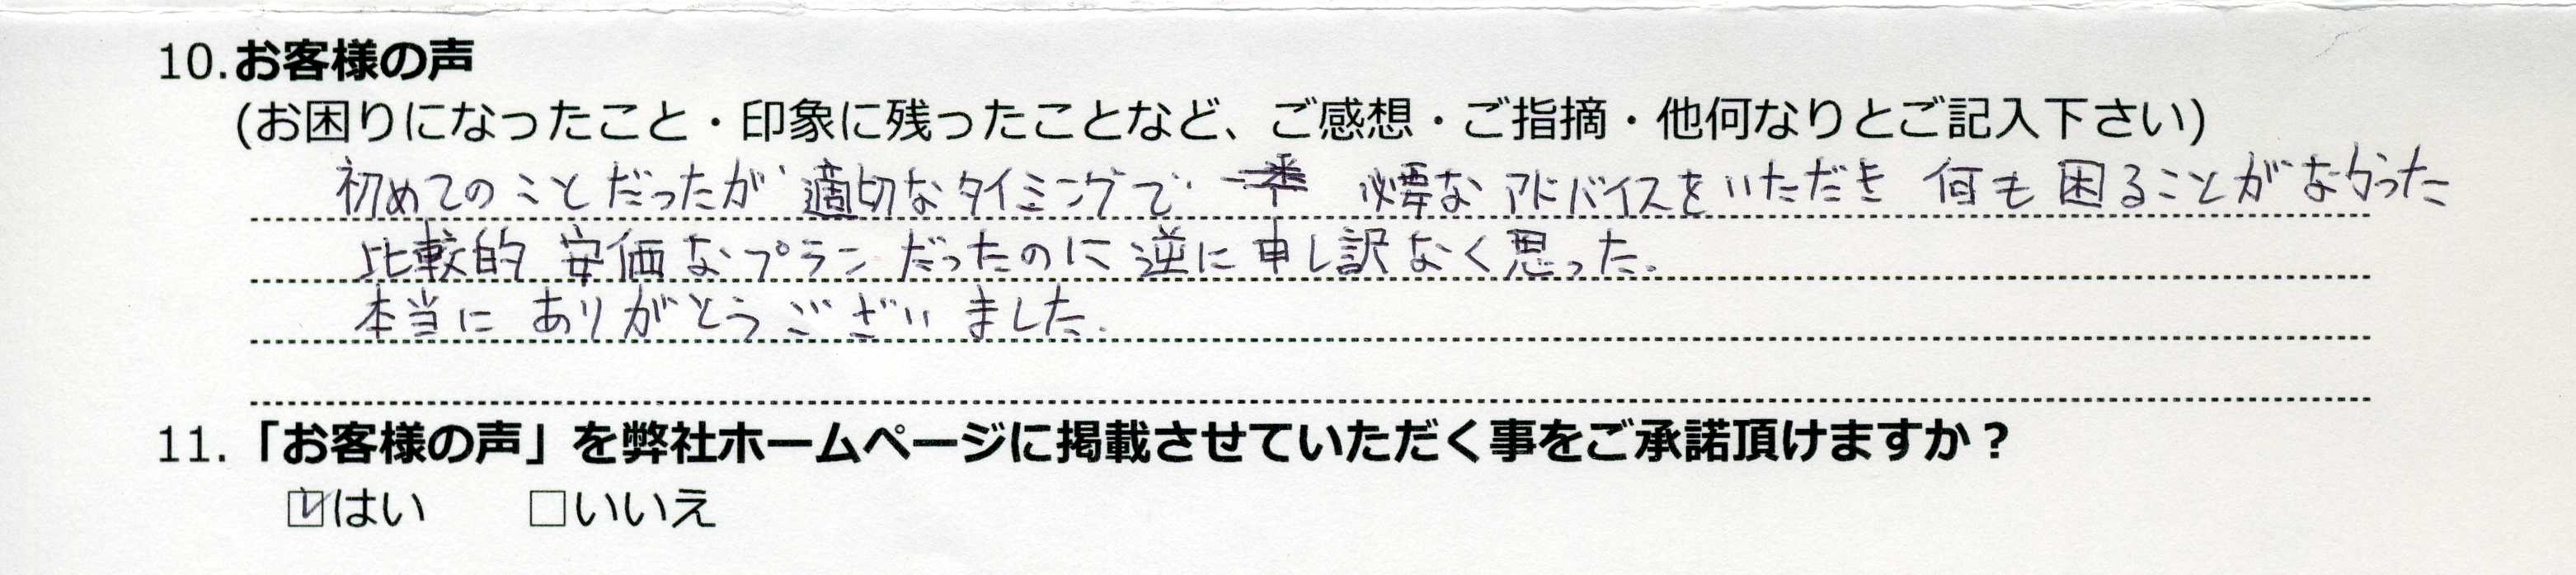 10.お客様の声
(お困りになったこと・印象に残ったことなど、ご感想・ご指摘・他何なりとご記入下さい)
初めてのことだったが 適切なタイミングで 一番 必要なアドバイスをいただき 何も 困ることがなかった
比較的 安価なプランだったのに 逆に 申し訳なく思った。
本当に ありがとうございました.
11.「お客様の声」を弊社ホームページに掲載させていただく事をご承諾頂けますか？
☑はい □いいえ